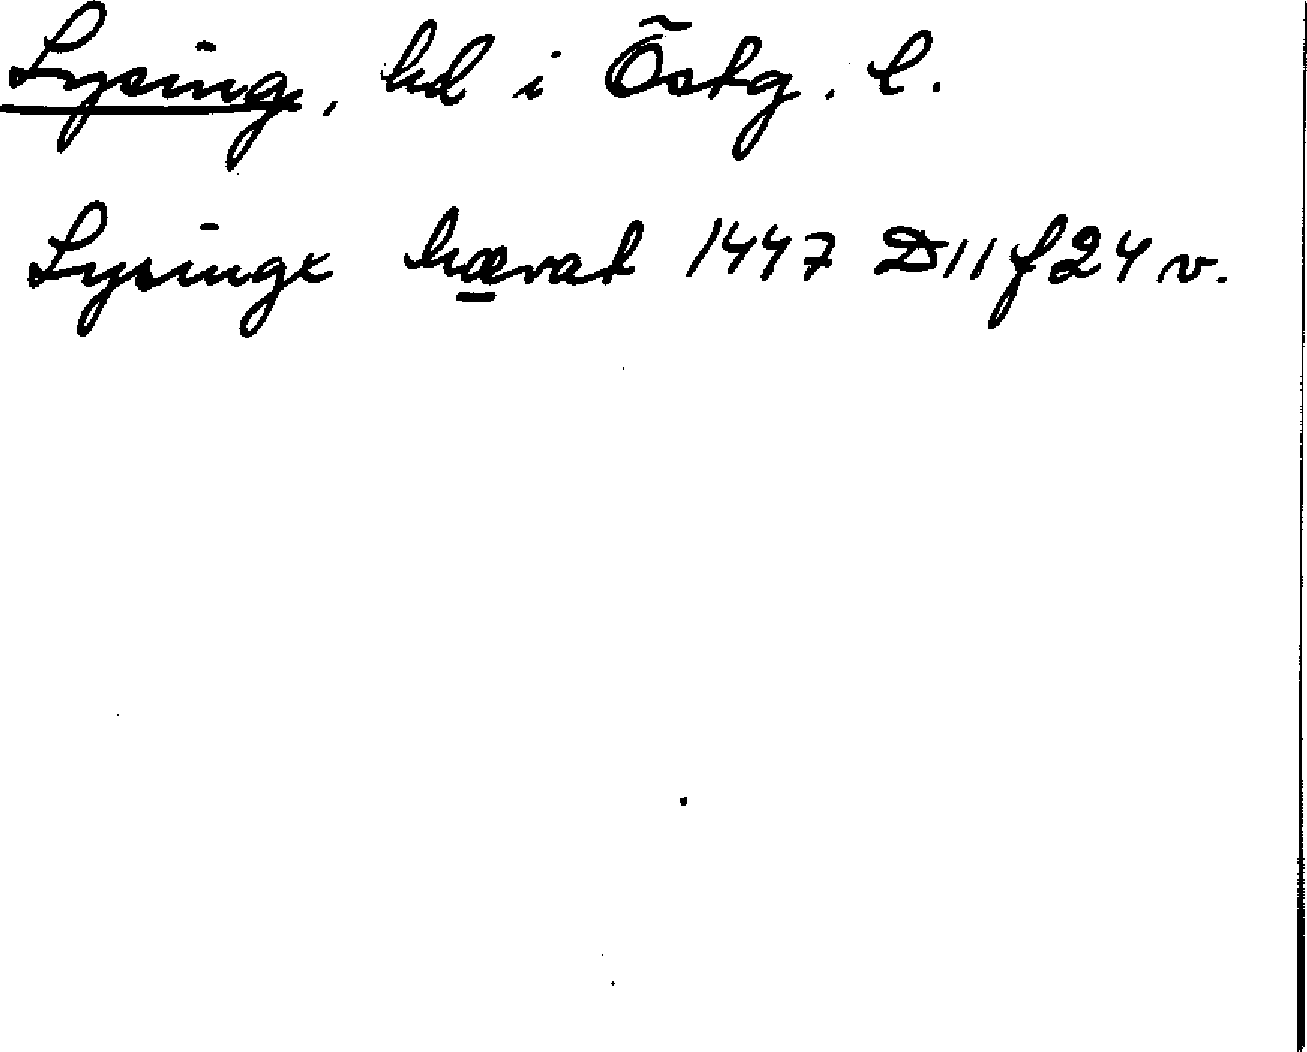 Lysing, hd i Östg. l.
Lysinge hærat 1447 D11 f 24 v.